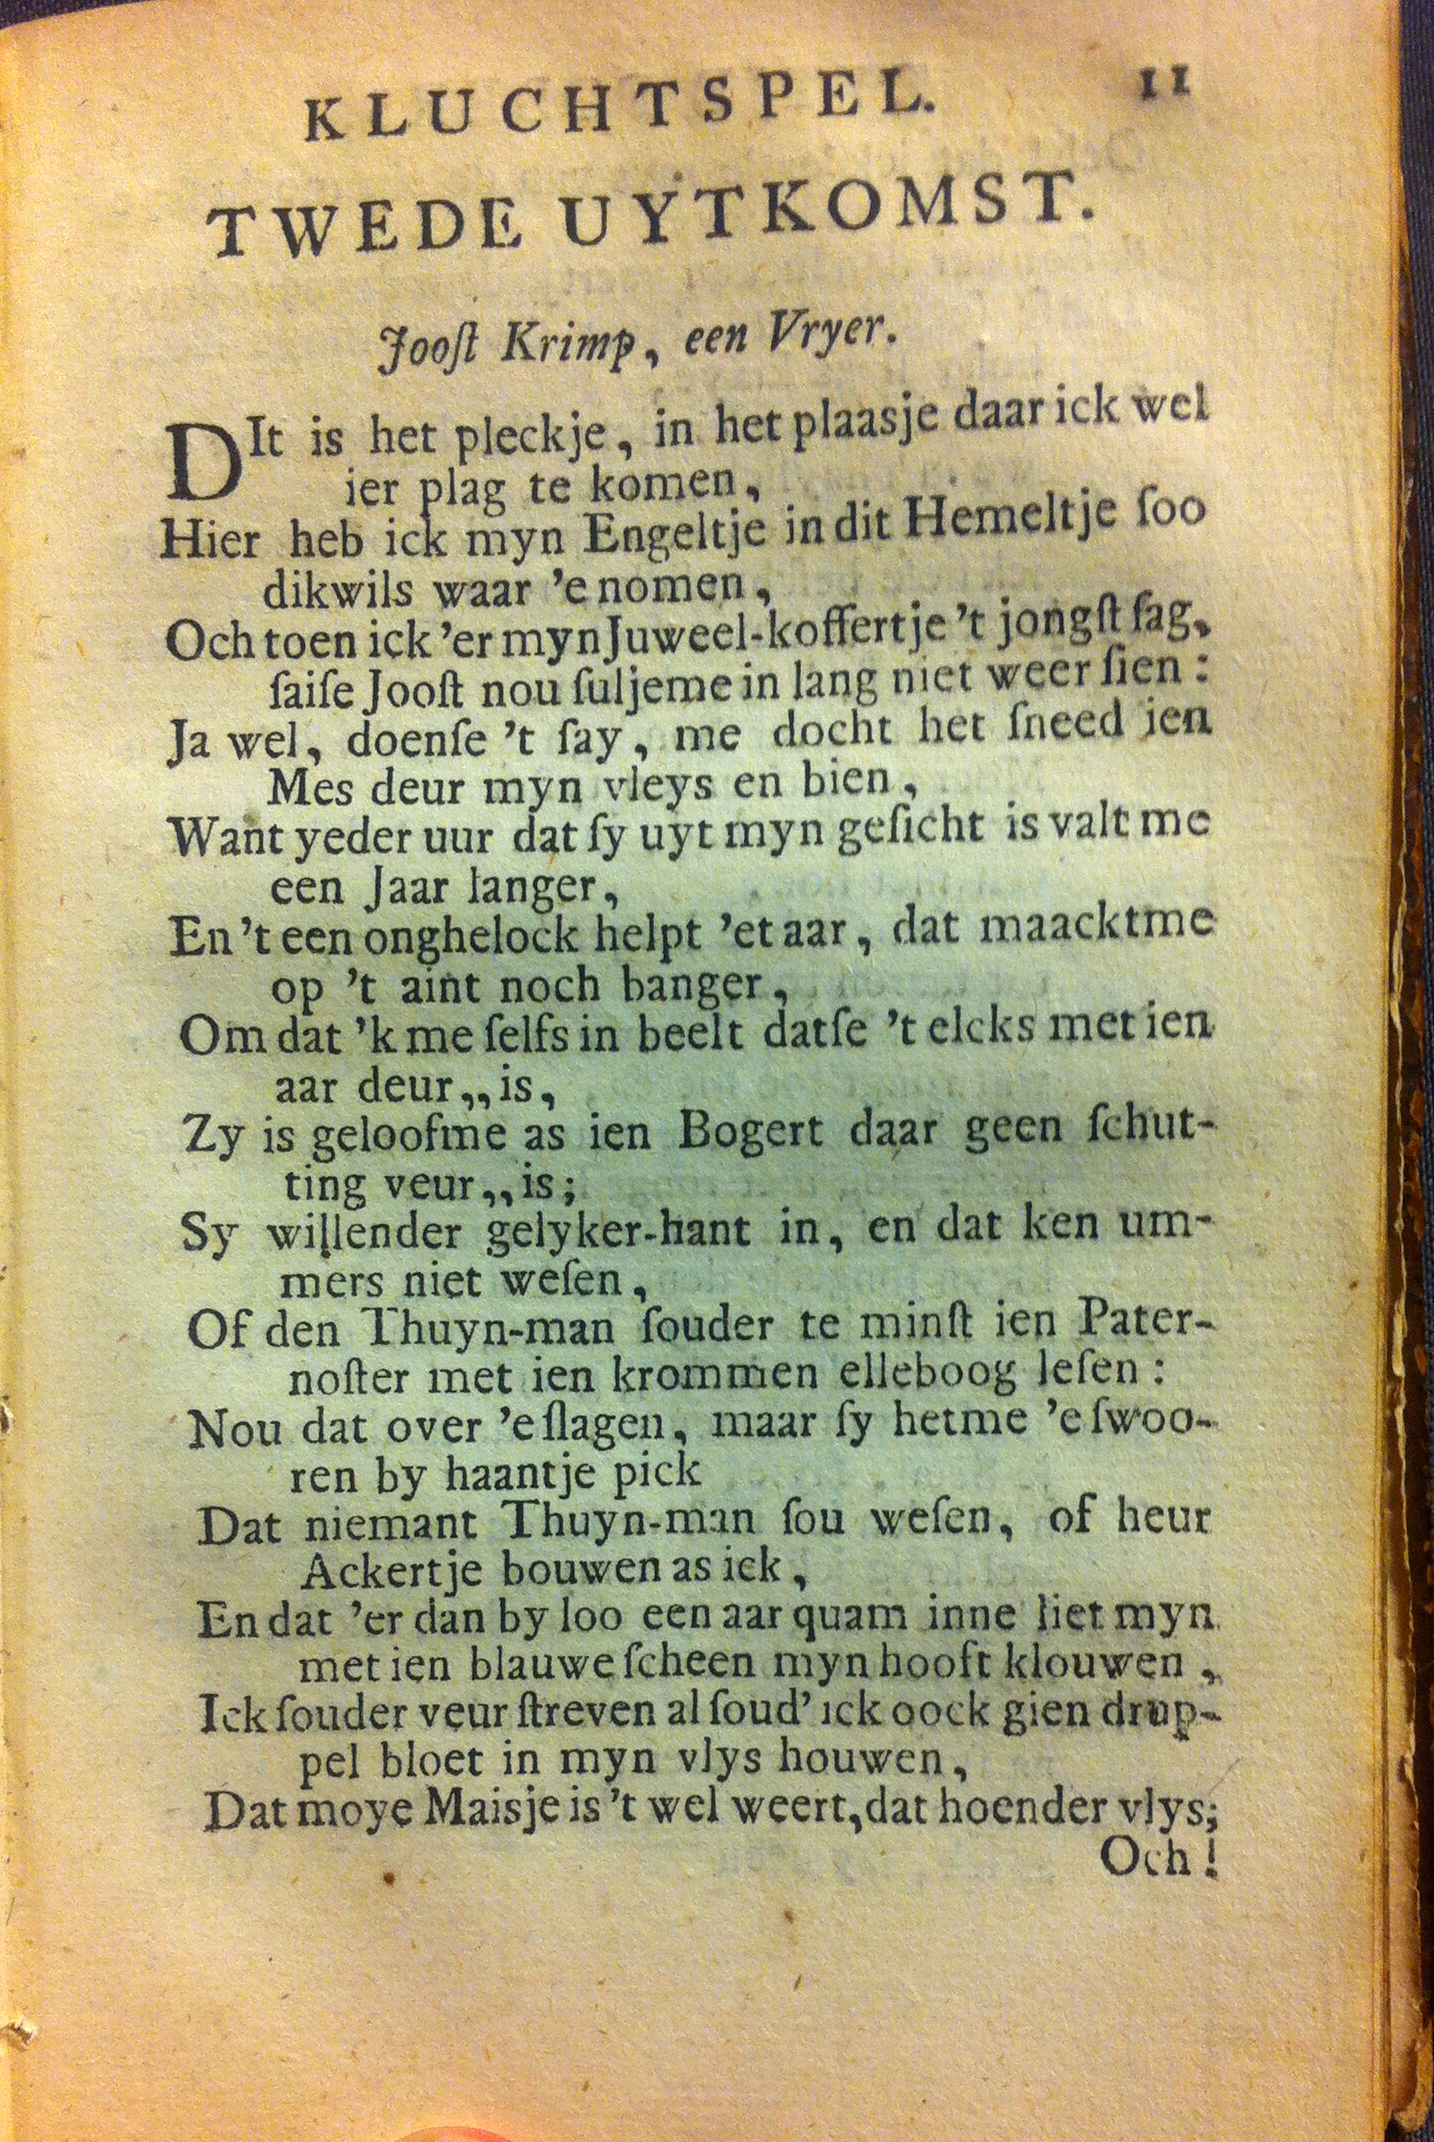 KLUCHTSPEL. 11
TWEDE UYTKOMST.
Jooſt Krimp, een Vryer.
DIt is het pleckje, in het plaasje daar ick wel
ier plag te komen,
Hier heb ick myn Engeltje in dit Hemeltje ſoo
dikwils waar 'e nomen,
Och toen ick 'er myn Juweel-koffertje 't jongſt ſag,
ſaiſe Jooſt nou ſuljeme in lang niet weer ſien:
Ja wel, doenſe 't ſay, me docht het ſneed ien
Mes deur myn vleys en bien,
Want yeder uur dat ſy uyt myn geſicht is valt me
een Jaar langer,
En 't een onghelock helpt 'et aar, dat maacktme
op 't aint noch banger,
Om dat 'k me ſelfs in beelt datſe 't elcks met ien
aar deur,, is,
Zy is geloofme as ien Bogert daar geen ſchut-
ting veur,, is;
Sy willender gelyker-hant in, en dat ken um-
mers niet weſen,
Of den Thuyn-man ſouder te minſt ien Pater-
noſter met ien krommen elleboog leſen:
Nou dat over 'e ſlagen, maar ſy hetme 'e ſwoo-
ren by haantje pick
Dat niemant Thuyn-man ſou weſen, of heur
Ackertje bouwen as ick,
En dat 'er dan by loo een aar quam inne liet myn
met ien blauwe ſcheen myn hooft klouwen,
Ick ſouder veur ſtreven al ſoud' ick oock gien drup-
pel bloet in myn vlys houwen,
Dat moye Maisje is 't wel weert, dat hoender vlys;
Och!